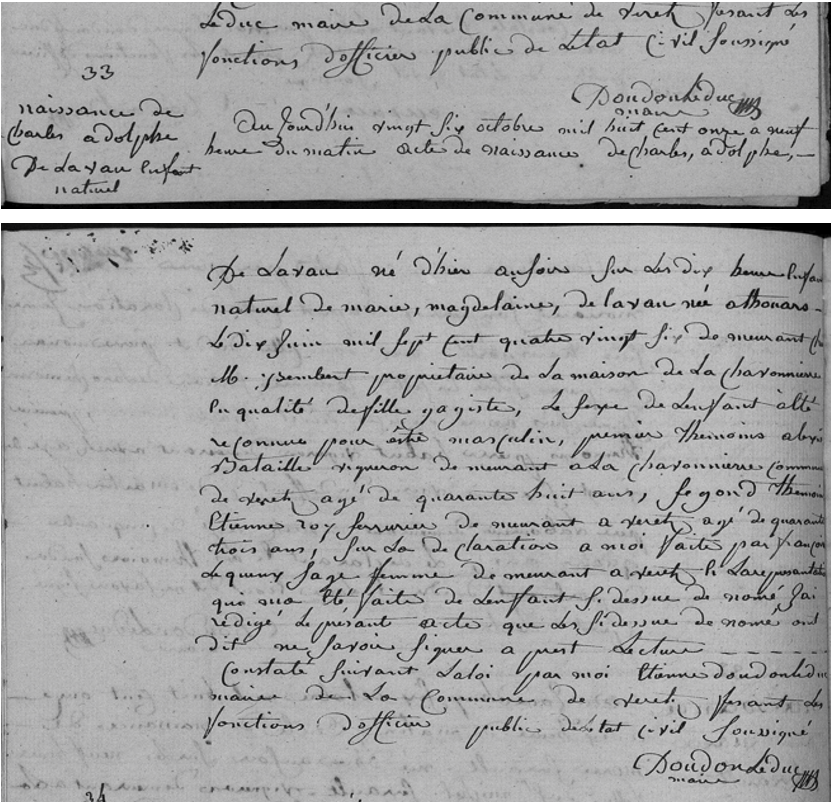 Leduc maire de La Commune de veretz fesant Les
fonctions d'officier public de Létat Civil Soussigné
Doudon Leduc
maire
33
naissance de
charles adolphe
De Lavau Enfant
naturel
Aujourd'hui vingt Six octobre mil huit Cent onze a neuf
heure du matin acte de naissance de Charles, adolphe, —
De Lavau né d'hier ausoir Sur Les dix heure Enfan
naturel de marie, magdelaine, de lavau née athouars -
Le dix Juin mil Sept Cent quatre vingt Six demeurant ch
M. propriétaire de La maison de La Chavonniere
En qualité defille gagiste, Le Sexe de Lenfant à été
reconnue pour être masculin, premier themoins alexi
Bataille vigneron demeurant a La Chavonniere Commune
de veretz agé de quarante huit ans, Segond Themoin
Etienne roy Serrurier demeurant a veretz agé de quarante
trois ans, Sur La declaration a moi faite par françoi
Lequeux Sage femme demeurant a veretz Et Lareprésentati
qui ma Eté faite de Lenfant Sidessue de nomé Jai
rédigé Le présant acte que Les Sidessue de nomé ont
dit ne Savoir Signer a prest Lecture - - - - -
Constaté Suivant La loi par moi Etienne doudon leduc
maire de La Commune de veretz fesant Les
fonctions d'officier public de Létat Civil Soussigné
Doudon Leduc
maire
34